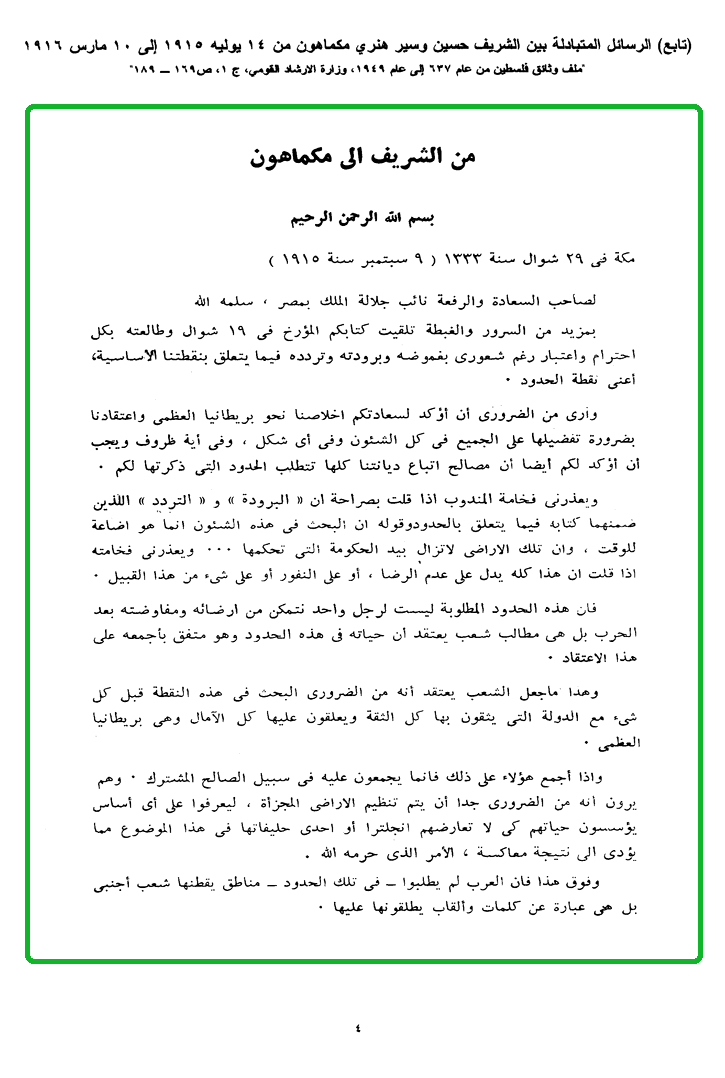 (تابع) الرسائل المتبادلة بين الشريف حسين وسير هنري مكماهون من ١٤ يوليه ١٩١٥ إلى ١٠ مارس ١٩١٦
"ملف وثائق فلسطين من عام ٦٣٧ إلى عام ١٩٤٩، وزارة الارشاد القومي، ج ١، ص١٦٩ – ١٨٩"
من الشريف الى مكماهون
بسم الله الرحمن الرحيم
مكة فى ٢٩ شوال سنة ١٣٣٣ ( ٩ سبتمبر سنة ١٩١٥ )
لصاحب السعادة والرفعة نائب جلالة الملك بمصر ، سلمه الله
بمزيد من السرور والغبطة تلقيت كتابكم المؤرخ فى ١٩ شوال وطالعته بكل
احترام واعتبار رغم شعورى بغموضه وبرودته وتردده فيما يتعلق بنقطتنا الأساسية،
أعنى نقطة الحدود ٠
وأرى من الضرورى أن أؤكد لسعادتكم اخلاصنا نحو بريطانيا العظمى واعتقادنا
بضرورة تفضيلها على الجميع فى كل الشئون وفى أى شكل ، وفى أية ظروف ويجب
أن أؤكد لكم أيضا أن مصالح اتباع ديانتنا كلها تتطلب الحدود التى ذكرتها لكم ٠
ويعذرنى فخامة المندوب اذا قلت بصراحة ان « البرودة » و « التردد » اللذين
ضمنهما كتابه فيما يتعلق بالحدودوقوله ان البحث فى هذه الشئون انما هو اضاعة
للوقت ، وان تلك الاراضى لاتزال بيد الحكومة التى تحكمها ٠٠٠ ويعذرنى فخامته
اذا قلت ان هذا كله يدل على عدم الرضا ، أو على النفور أو على شىء من هذا القبيل ٠
فان هذه الحدود المطلوبة ليست لرجل واحد نتمكن من ارضائه ومفاوضته بعد
الحرب بل هى مطالب شعب يعتقد أن حياته فى هذه الحدود وهو متفق بأجمعه على
هذا الاعتقاد ٠
وهدا ماجعل الشعب يعتقد أنه من الضرورى البحث فى هذه النقطة قبل كل
شىء مع الدولة التى يثقون بها كل الثقة ويعلقون عليها كل الآمال وهى بريطانيا
العظمى ٠
واذا أجمع هؤلاء على ذلك فانما يجمعون عليه فى سبيل الصالح المشترك ٠ وهم
يرون أنه من الضرورى جدا أن يتم تنظيم الاراضى المجزأة ، ليعرفوا على أى أساس
يؤسسون حياتهم كى لا تعارضهم انجلترا أو احدى حليفاتها فى هذا الموضوع مما
يؤدى الى نتيجة معاكسة ، الأمر الذى حرمه الله .
وفوق هذا فان العرب لم يطلبوا – فى تلك الحدود – مناطق يقطنها شعب أجنبى
بل هى عبارة عن كلمات وألقاب يطلقونها عليها ٠
٤